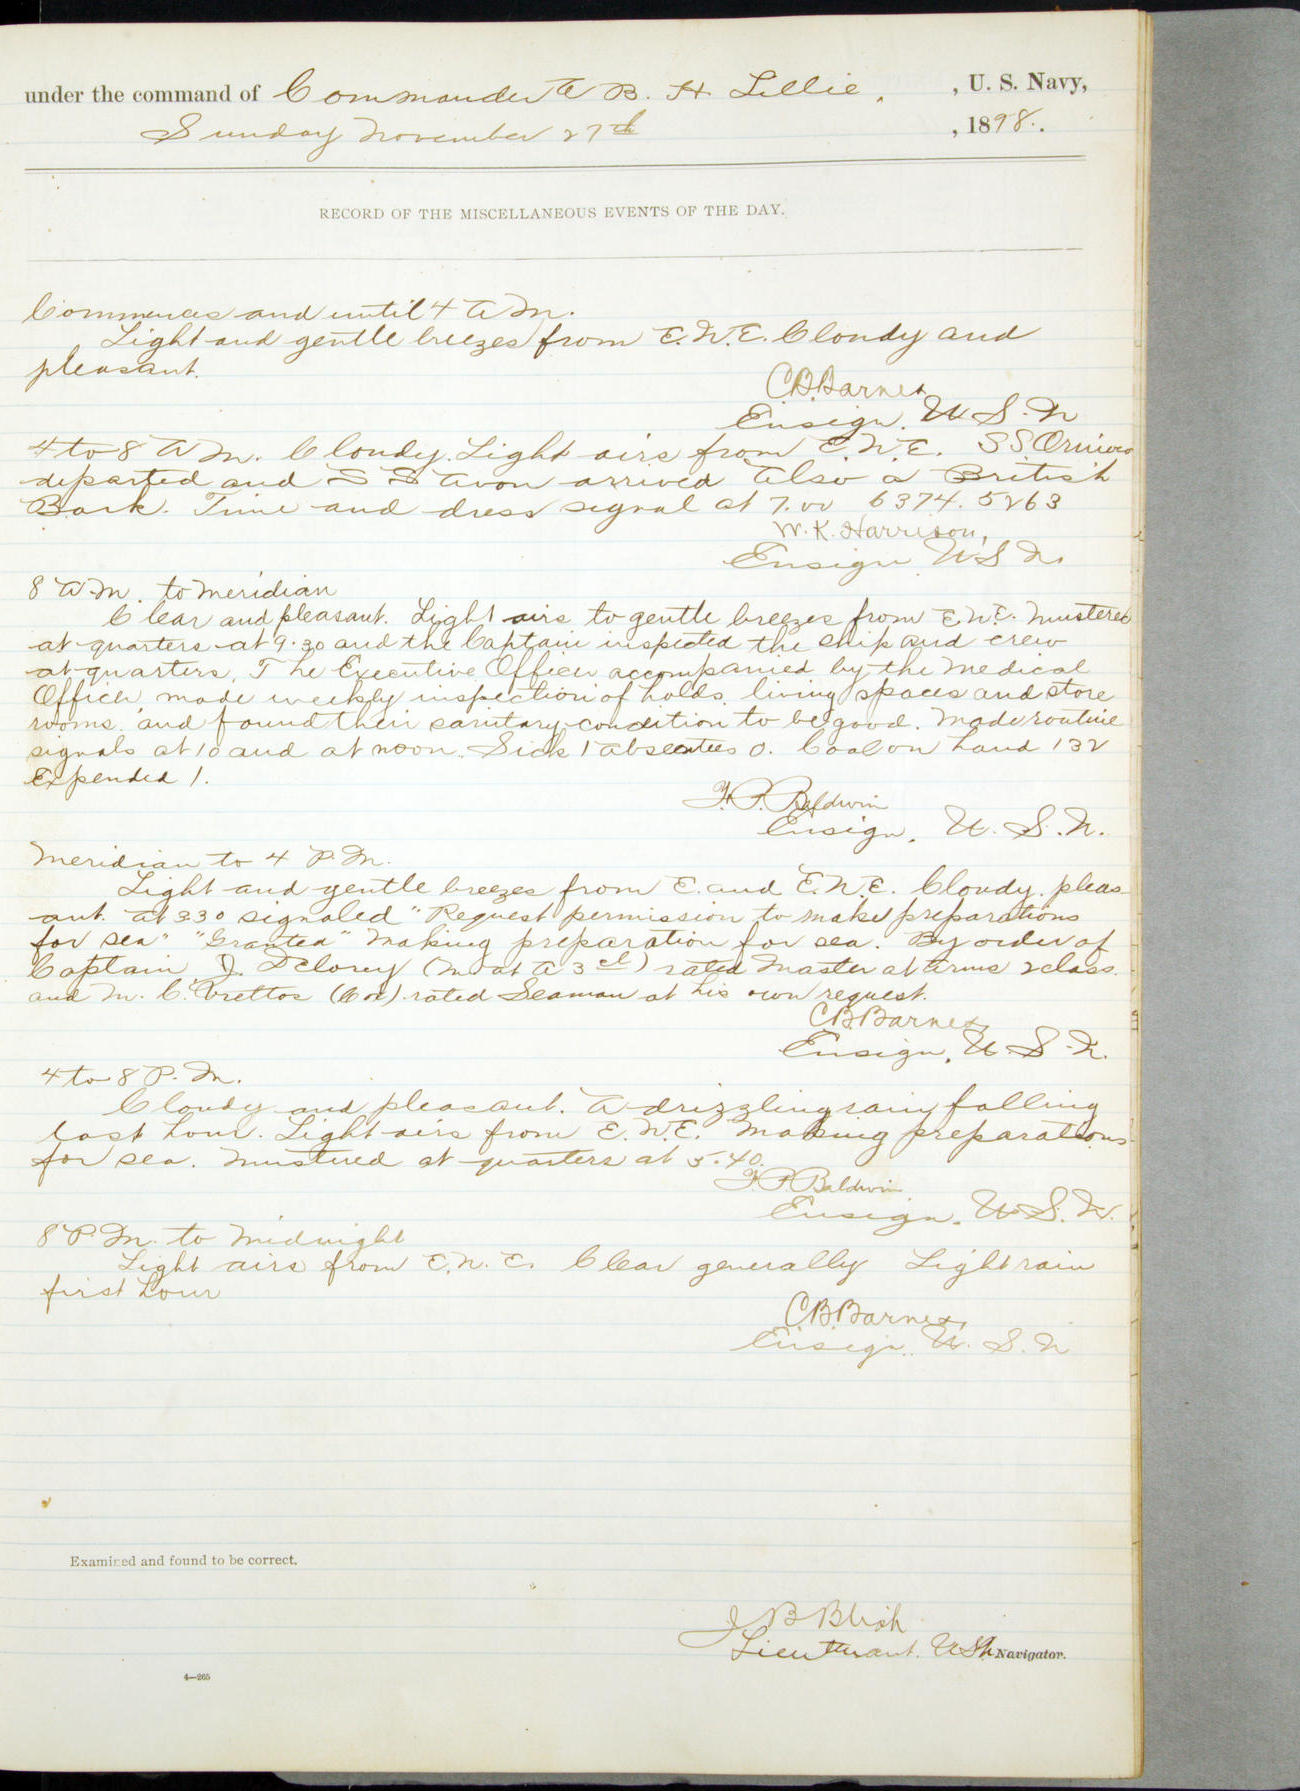 under the command of Commander A B. H. Lillie. , U. S. Navy,
Sunday November 27th , 1898.
RECORD OF THE MISCELLANEOUS EVENTS OF THE DAY.
Commences and until 4 A M.
Light and gentle breezes from E.N.E. Cloudy and
pleasant.
C.B.Barnes
Ensign. U S. N
4 to 8 A M. Cloudy. Light airs from E.N.E. S S
departed and S S Avon arrived Also a British
Bark. Time and dress signal at 7.00 6374. 5263
W. K. Harrison,
Ensign U S N.
8 A.M. to meridian
Clear and pleasant. Light airs to gentle breezes from E.N.E. Mustered
at quarters at 9.30 and the Captain inspected the ship and crew
at quarters. The Executive Officer accompanied by the Medical
Officer, made weekly inspection of holds, living spaces and store
rooms, and found their sanitary condition to be good. Made routine
signals at 10 and at noon. Sick 1 Absentees 0. Coal on hand 132
Expended 1.
F. P. Baldwin
Ensign, U. S. N.
Meridian to 4 P. M.
Light and gentle breezes from E. and E.N.E. Cloudy. pleas-
ant. At 330 signaled "Request permission to make preparations
for sea" "Granted" Making preparation for sea. By order of
Captain J. Delorey (M at A 3 cl) rated Master at Arms 2 class.
and M. C. Vrettos (Cox) rated Seaman at his own request.
C.B.Barnes
Ensign, U. S. N.
4 to 8 P. M.
Cloudy and pleasant. A drizzling rain falling
last hour. Light airs from E. N.E. Making preparations
for sea. Mustered at quarters at 5.40.
F. P. Baldwin
Ensign. U. S. N.
8 P. M. to Midnight
Light airs from E. N. E. Clear generally Light rain
first hour
C.B.Barnes,
Ensign. U. S. N
Examined and found to be correct.
J B Blish
Lieutenant. USN Navigator.
4—265